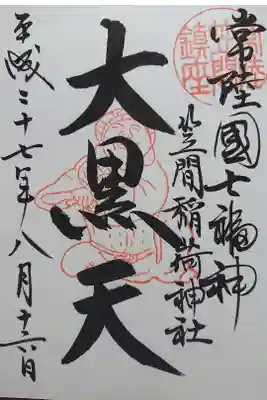 常陸國七福神
笠間稲荷神社
大黒天
平成二十七年八月十六日